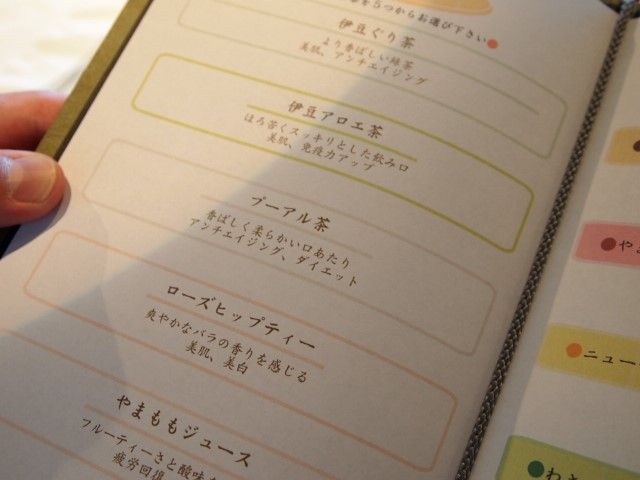 5つからお選び下さい
伊豆ぐり茶
より香ばしい緑茶
美肌、アンチエイジング
伊豆アロエ茶
ほろ苦くスッキリとした飲み口
美肌、免疫力アップ
プーアル茶
香ばしく柔らかい口あたり
アンチエイジング、ダイエット
ローズヒップティー
爽やかなバラの香りを感じる
美肌、美白
やまももジュース
フルーティーさと酸味
疲労回復
やま
ニュー
わさ